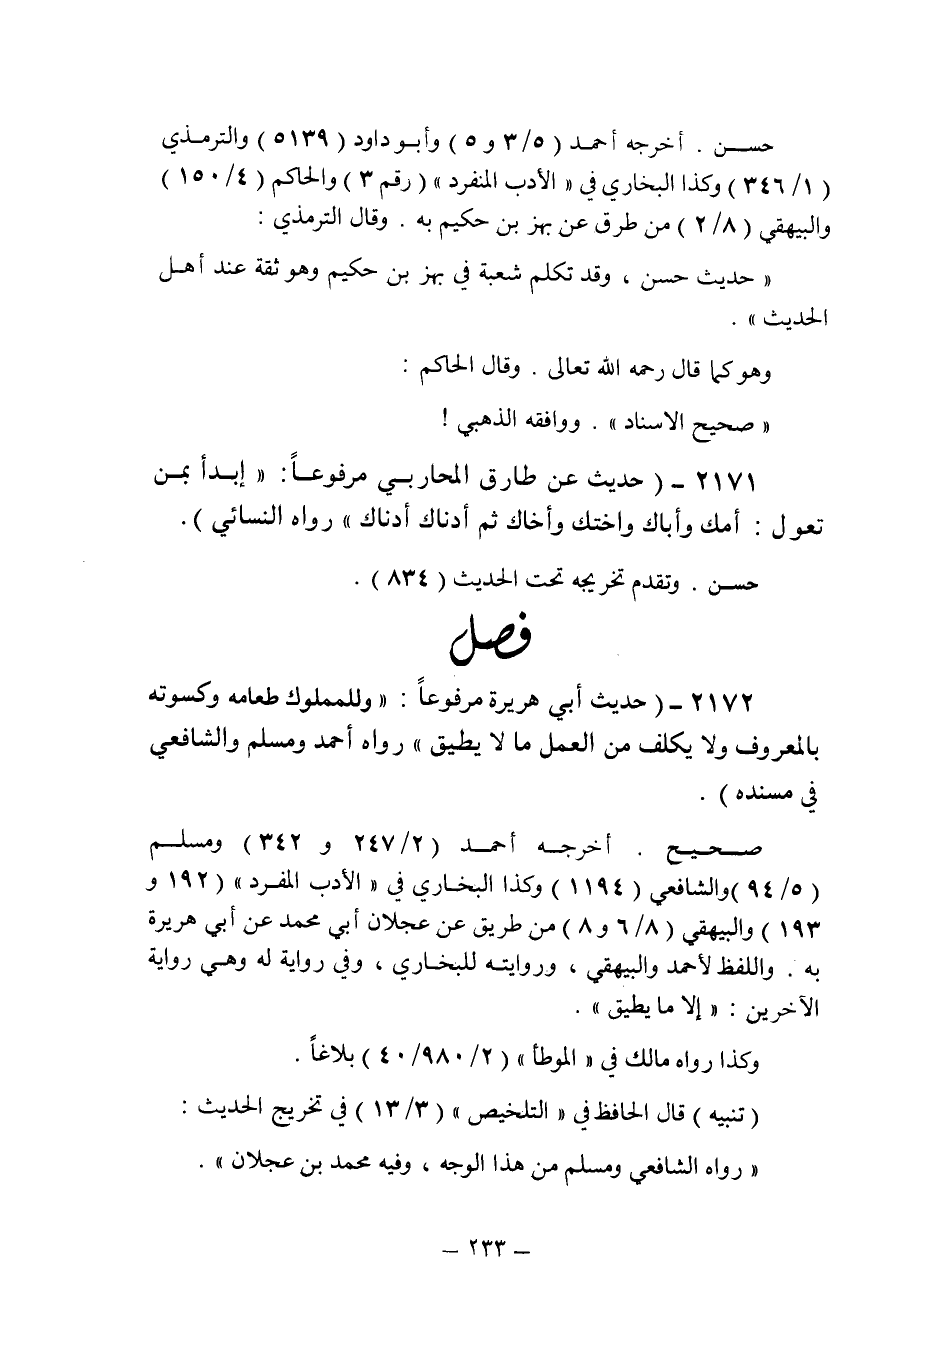 حســـن . أخرجه أحمـد ( ٥/ ٣ و ٥ ) وأبـو داود ( ٥١٣٩ ) والترمـذي
( ١/ ٣٤٦ ) وكذا البخاري في « الأدب المنفرد » ( رقم ٣ ) والحاكم ( ٤/ ١٥٠ )
والبيهقي ( ٨/ ٢ ) من طرق عن بهز بن حكيم به . وقال الترمذي :
« حديث حسن ، وقد تكلم شعبة في بهز بن حكيم وهو ثقة عند أهـل
الحديث » .
وهو كما قال رحمه الله تعالى . وقال الحاكم :
« صحيح الاسناد » . ووافقه الذهبي !
٢١٧١ ـ ( حديث عن طارق المحاربـي مرفوعـاً : « إبـدأ بمـن
تعول : أمك وأباك واختك وأخاك ثم أدناك أدناك » رواه النسائي ) .
حسـن . وتقدم تخريجه تحت الحديث ( ٨٣٤ ) .
فصل
٢١٧٢ ـ ( حديث أبي هريرة مرفوعاً : « وللمملوك طعامه وكسوته
بالمعروف ولا يكلف من العمل ما لا يطيق » رواه أحمد ومسلم والشافعي
في مسنده ) .
صـحـيـح . أخرجـه أحمـد ( ٢/ ٢٤٧ و ٣٤٢ ) ومسلـم
( ٥/ ٩٤ )والشافعي ( ١١٩٤ ) وكذا البخـاري في « الأدب المفـرد » ( ١٩٢ و
١٩٣ ) والبيهقي ( ٨/ ٦ و ٨ ) من طريق عن عجلان أبي محمد عن أبي هريرة
به . واللفظ لأحمد والبيهقي ، وروايتـه للبخـاري ، وفي رواية له وهـي رواية
الآخرين : « إلا ما يطيق » .
وكذا رواه مالك في « الموطأ » ( ٢/ ٩٨٠/ ٤٠ ) بلاغاً .
( تنبيه ) قال الحافظ في « التلخيص » ( ٣/ ١٣ ) في تخريج الحديث :
« رواه الشافعي ومسلم من هذا الوجه ، وفيه محمد بن عجلان » .
ـ ٢٣٣ ـ